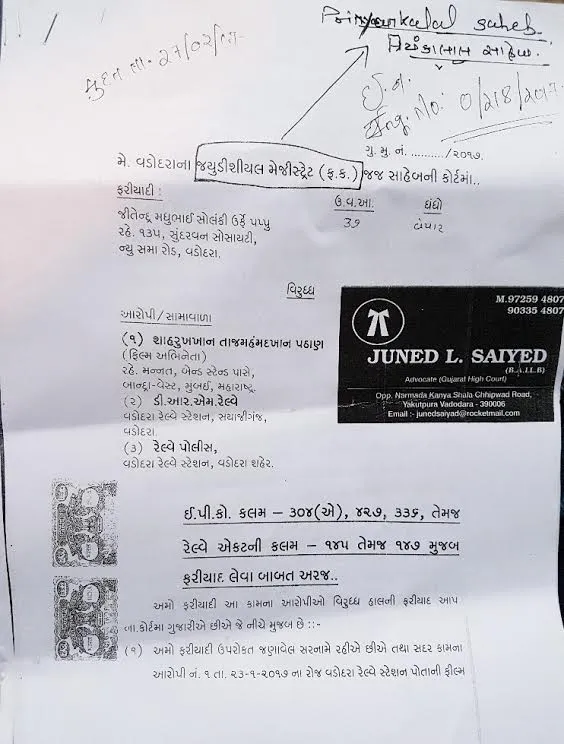 Priyankalal saheb.
પ્રિયંકાલાલ સાહેબ.
મુદત તા. ૨૭/૦૨/૧૭
ઈ.ન.
Inq. No: 0/218/2017
ગુ.મુ.નં. ........../૨૦૧૭.
મે. વડોદરાના જ્યુડીશીયલ મેજીસ્ટ્રેટ (ફ.ક.) જજ સાહેબની કોર્ટમાં..
ફરીયાદી : ઉ.વ.આ. ધંધો
જીતેન્દ્ર મધુભાઈ સોલંકી ઉર્ફે પપ્પુ ૩૭ વેપાર
રહે. ૧૩૫, સુંદરવન સોસાયટી,
ન્યુ સમા રોડ, વડોદરા.
વિરુધ્ધ
આરોપી/સામાવાળા
(૧) શાહરુખખાન તાજમહંમદખાન પઠાણ
(ફિલ્મ અભિનેતા)
રહે. મન્નત, બેન્ડ સ્ટેન્ડ પાસે,
બાન્દ્રા-વેસ્ટ, મુંબઈ, મહારાષ્ટ્ર.
(૨) ડી.આર.એમ.રેલ્વે
વડોદરા રેલ્વે સ્ટેશન, સયાજીગંજ,
વડોદરા.
(૩) રેલ્વે પોલીસ,
વડોદરા રેલ્વે સ્ટેશન, વડોદરા શહેર.
M.97259 4807
90335 4807
JUNED L. SAIYED
(B.A.LL.B)
Advocate (Gujarat High Court)
Opp. Narmada Kanya Shala Chhipwad Road,
Yakutpura Vadodara - 390006
Email :- junedsaiyad@rocketmail.com
ઈ.પી.કો. કલમ – ૩૦૪(એ), ૪૨૭, ૩૩૬, તેમજ
રેલ્વે એકટની કલમ – ૧૪૫ તેમજ ૧૪૭ મુજબ
ફરીયાદ લેવા બાબત અરજ..
અમો ફરીયાદી આ કામના આરોપીઓ વિરુધ્ધ હાલની ફરીયાદ આપ
ના.કોર્ટમા ગુજારીએ છીએ જે નીચે મુજબ છે ::-
(૧) અમો ફરીયાદી ઉપરોકત જણાવેલ સરનામે રહીએ છીએ તથા સદર કામના
આરોપી નં. ૧ તા. ૨૩-૧-૨૦૧૭ ના રોજ વડોદરા રેલ્વે સ્ટેશન પોતાની ફીલ્મ